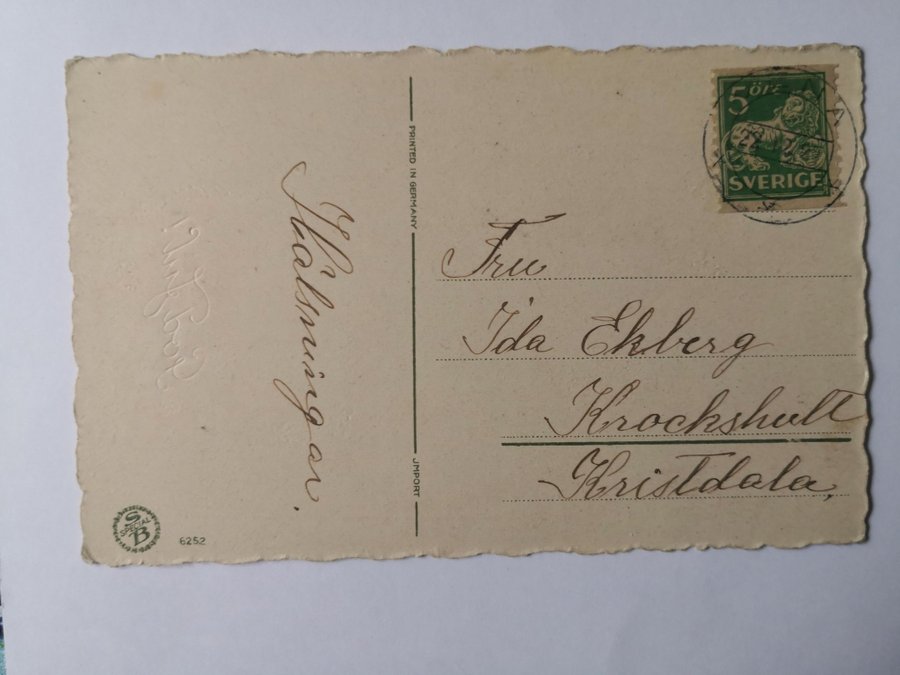 Hälsningar.
PRINTED IN GERMANY
JMPORT
5 ÖRE
SVERIGE
Fru
Ida Ekberg
Krockshult
Kristdala.
S
SPECIAL
B
6252